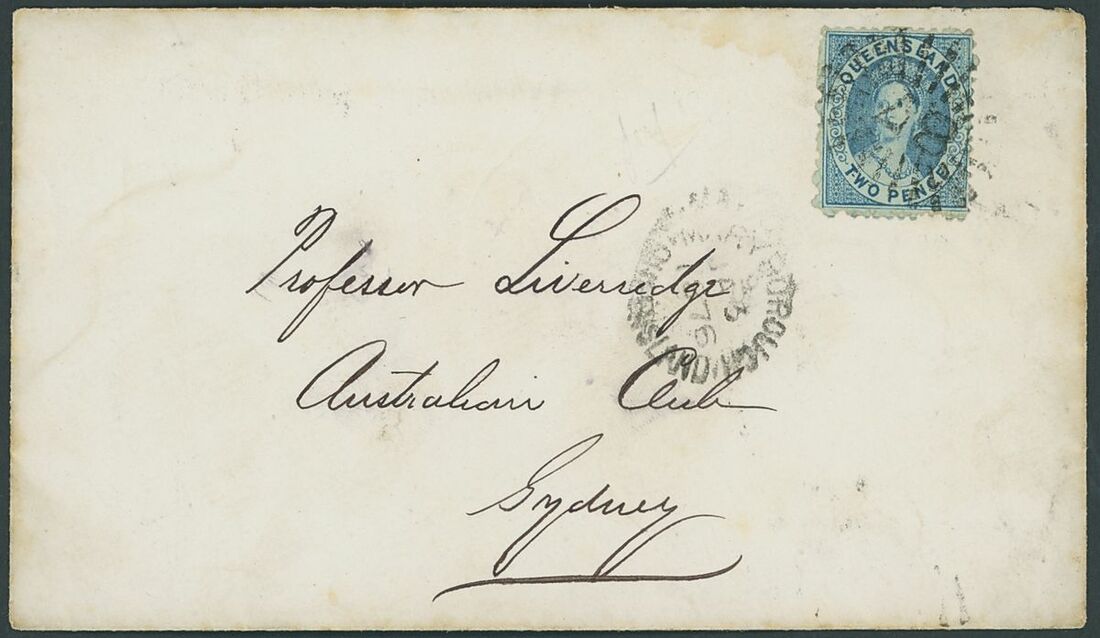 QUEENSLAND
TWO PENCE
Professor Liversidge
Australian Club
Sydney